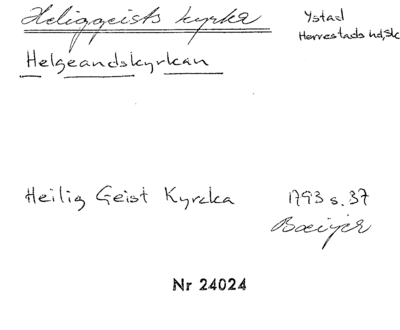 Heliggeists kyrka
Ystad
Herrestads hd, Sk
Helgeandskyrkan
Heilig Geist Kyrcka
1793 s. 37
Bæijer
Nr 24024